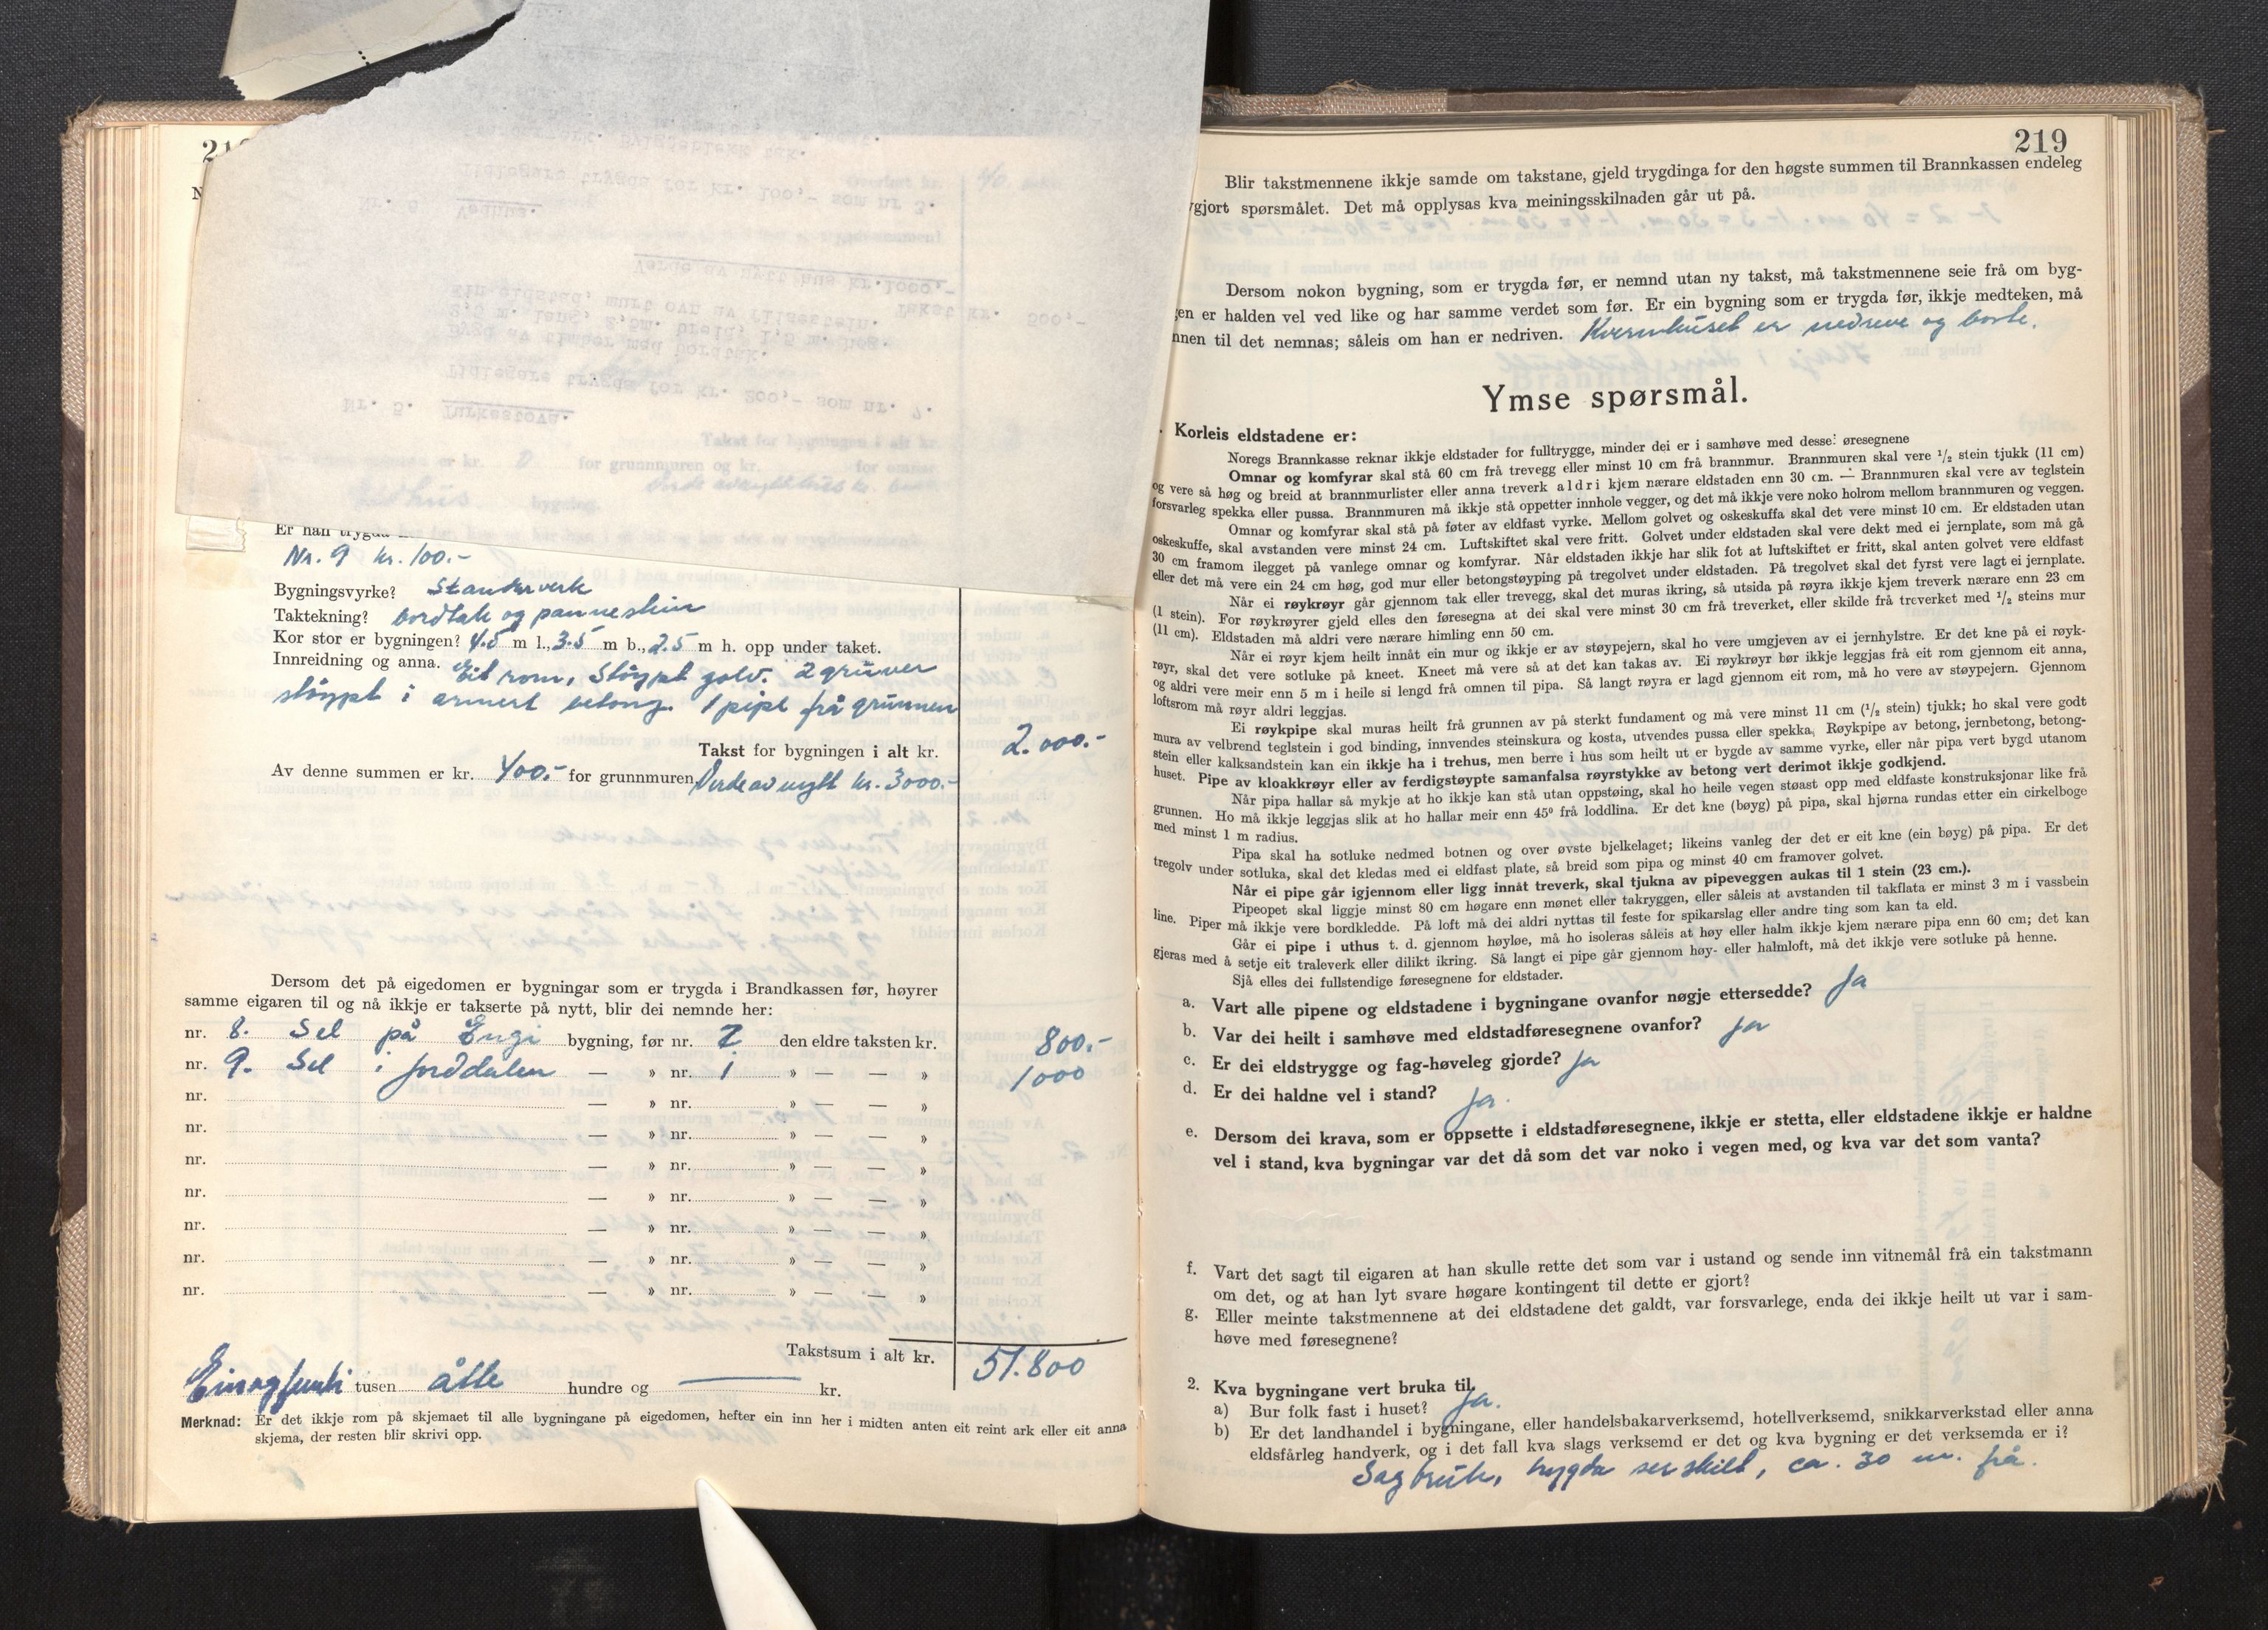 Er han trygda
Nr. 9 kr. 100.-
Bygningsvyrke? Standerverk
Taktekning? bordtak og pannestein
Kor stor er bygningen? 4.5 m l., 3.5 m b., 2.5 m h. opp under taket.
Innreidning og anna. Eit rom, Støypt golv. 2 gruver
støypt i armert betong. 1 pipe frå grunnen
Takst for bygningen i alt kr. 2.000.-
Av denne summen er kr. 400.- for grunnmuren, Verde av nytt kr. 3000.-
Dersom det på eigedomen er bygningar som er trygda i Brandkassen før, høyrer
samme eigaren til og nå ikkje er takserte på nytt, blir dei nemnde her:
nr. 8. Sel på Engi bygning, før nr. 2 den eldre taksten kr. 800.-
nr. 9. Sel i Jorddalen — » nr. 1 » — — » 1000
nr. — » nr. » — — »
nr. — » nr. » — — »
nr. — » nr. » — — »
nr. — » nr. » — — »
nr. — » nr. » — — »
nr. — » nr. » — — »
nr. — » nr. » — — »
Takstsum i alt kr. 51.800
Einogfemti tusen åtte hundre og — kr.
Merknad: Er det ikkje rom på skjemaet til alle bygningane på eigedomen, hefter ein inn her i midten anten eit reint ark eller eit anna
skjema, der resten blir skrivi opp.
219
Blir takstmennene ikkje samde om takstane, gjeld trygdinga for den høgste summen til Brannkassen endeleg
gjort spørsmålet. Det må opplysas kva meiningsskilnaden går ut på.
Dersom nokon bygning, som er trygda før, er nemnd utan ny takst, må takstmennene seie frå om byg-
en er halden vel ved like og har samme verdet som før. Er ein bygning som er trygda før, ikkje medteken, må
nnen til det nemnas; såleis om han er nedriven. Kvernhuset er nedreve og borte.
Ymse spørsmål.
. Korleis eldstadene er:
Noregs Brannkasse reknar ikkje eldstader for fulltrygge, minder dei er i samhøve med desse: øresegnene
Omnar og komfyrar skal stå 60 cm frå trevegg eller minst 10 cm frå brannmur. Brannmuren skal vere 1/2 stein tjukk (11 cm)
og vere så høg og breid at brannmurlister eller anna treverk aldri kjem nærare eldstaden enn 30 cm. — Brannmuren skal vere av teglstein
forsvarleg spekka eller pussa. Brannmuren må ikkje stå oppetter innhole vegger, og det må ikkje vere noko holrom mellom brannmuren og veggen.
Omnar og komfyrar skal stå på føter av eldfast vyrke. Mellom golvet og oskeskuffa skal det vere minst 10 cm. Er eldstaden utan
oskeskuffe, skal avstanden vere minst 24 cm. Luftskiftet skal vere fritt. Golvet under eldstaden skal vere dekt med ei jernplate, som må gå
30 cm framom ilegget på vanlege omnar og komfyrar. Når eldstaden ikkje har slik fot at luftskiftet er fritt, skal anten golvet vere eldfast
eller det må vere ein 24 cm høg, god mur eller betongstøyping på tregolvet under eldstaden. På tregolvet skal det fyrst vere lagt ei jernplate.
Når ei røykrøyr går gjennom tak eller trevegg, skal det muras ikring, så utsida på røyra ikkje kjem treverk nærare enn 23 cm
(1 stein). For røykrøyrer gjeld elles den føresegna at dei skal vere minst 30 cm frå treverket, eller skilde frå treverket med 1/2 steins mur
(11 cm). Eldstaden må aldri vere nærare himling enn 50 cm.
Når ei røyr kjem heilt innåt ein mur og ikkje er av støypejern, skal ho vere umgjeven av ei jernhylstre. Er det kne på ei røyk-
røyr, skal det vere sotluke på kneet. Kneet må vere så at det kan takas av. Ei røykrøyr bør ikkje leggjas frå eit rom gjennom eit anna,
og aldri vere meir enn 5 m i heile si lengd frå omnen til pipa. Så langt røyra er lagd gjennom eit rom, må ho vere av støypejern. Gjennom
loftsrom må røyr aldri leggjas.
Ei røykpipe skal muras heilt frå grunnen av på sterkt fundament og må vere minst 11 cm (1/2 stein) tjukk; ho skal vere godt
mura av velbrend teglstein i god binding, innvendes steinskura og kosta, utvendes pussa eller spekka. Røykpipe av betong, jernbetong, betong-
stein eller kalksandstein kan ein ikkje ha i trehus, men berre i hus som heilt ut er bygde av samme vyrke, eller når pipa vert bygd utanom
huset. Pipe av kloakkrøyr eller av ferdigstøypte samanfalsa røyrstykke av betong vert derimot ikkje godkjend.
Når pipa hallar så mykje at ho ikkje kan stå utan oppstøing, skal ho heile vegen støast opp med eldfaste konstruksjonar like frå
grunnen. Ho må ikkje leggjas slik at ho hallar meir enn 45° frå loddlina. Er det kne (bøyg) på pipa, skal hjørna rundas etter ein cirkelboge
med minst 1 m radius.
Pipa skal ha sotluke nedmed botnen og over øvste bjelkelaget; likeins vanleg der det er eit kne (ein bøyg) på pipa. Er det
tregolv under sotluka, skal det kledas med ei eldfast plate, så breid som pipa og minst 40 cm framover golvet.
Når ei pipe går igjennom eller ligg innåt treverk, skal tjukna av pipeveggen aukas til 1 stein (23 cm.).
Pipeopet skal liggje minst 80 cm høgare enn mønet eller takryggen, eller såleis at avstanden til takflata er minst 3 m i vassbein
line. Piper må ikkje vere bordkledde. På loft må dei aldri nyttas til feste for spikarslag eller andre ting som kan ta eld.
Går ei pipe i uthus t. d. gjennom høyløe, må ho isoleras såleis at høy eller halm ikkje kjem nærare pipa enn 60 cm; det kan
gjeras med å setje eit traleverk eller dilikt ikring. Så langt ei pipe går gjennom høy- eller halmloft, må det ikkje vere sotluke på henne.
Sjå elles dei fullstendige føresegnene for eldstader.
a. Vart alle pipene og eldstadene i bygningane ovanfor nøgje ettersedde? Ja
b. Var dei heilt i samhøve med eldstadføresegnene ovanfor? Ja
c. Er dei eldstrygge og fag-høveleg gjorde? Ja
d. Er dei haldne vel i stand? Ja.
e. Dersom dei krava, som er oppsette i eldstadføresegnene, ikkje er stetta, eller eldstadene ikkje er haldne
vel i stand, kva bygningar var det då som det var noko i vegen med, og kva var det som vanta?
f. Vart det sagt til eigaren at han skulle rette det som var i ustand og sende inn vitnemål frå ein takstmann
om det, og at han lyt svare høgare kontingent til dette er gjort?
g. Eller meinte takstmennene at dei eldstadene det galdt, var forsvarlege, enda dei ikkje heilt ut var i sam-
høve med føresegnene?
2. Kva bygningane vert bruka til.
a) Bur folk fast i huset? Ja.
b) Er det landhandel i bygningane, eller handelsbakarverksemd, hotellverksemd, snikkarverkstad eller anna
eldsfårleg handverk, og i det fall kva slags verksemd er det og kva bygning er det verksemda er i?
Sagbruk, trygda serskilt, ca. 30 m. frå.